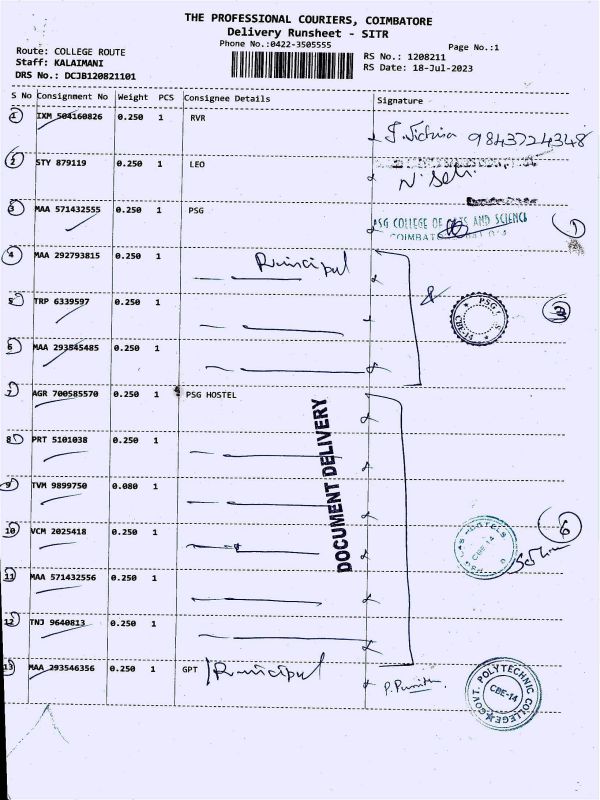 THE PROFESSIONAL COURIERS, COIMBATORE
Delivery Runsheet - SITR
Phone No.:0422-3505555
Page No.:1
Route: COLLEGE ROUTE
Staff: KALAIMANI
DRS No.: DCJB120821101
RS No.: 1208211
RS Date: 18-Jul-2023
S No Consignment No Weight PCS Consignee Details Signature
1 IXM 504160826 0.250 1 RVR 9843724348
2 STY 879119 0.250 1 LEO
3 MAA 571432555 0.250 1 PSG
PSG COLLEGE OF ARTS AND SCIENCE
4 MAA 292793815 0.250 1 Principal
5 TRP 6339597 0.250 1
6 MAA 293545485 0.250 1
7 AGR 700585570 0.250 1 PSG HOSTEL
DOCUMENT DELIVERY
8 PRT 5101038 0.250 1
9 TVM 9899750 0.080 1
10 VCM 2025418 0.250 1
6
CBE-14
11 MAA 571432556 0.250 1
12 TNJ 9640813 0.250 1
13 MAA 293546356 0.250 1 GPT Principal
GOVT. POLYTECHNIC COLLEGE
CBE-14